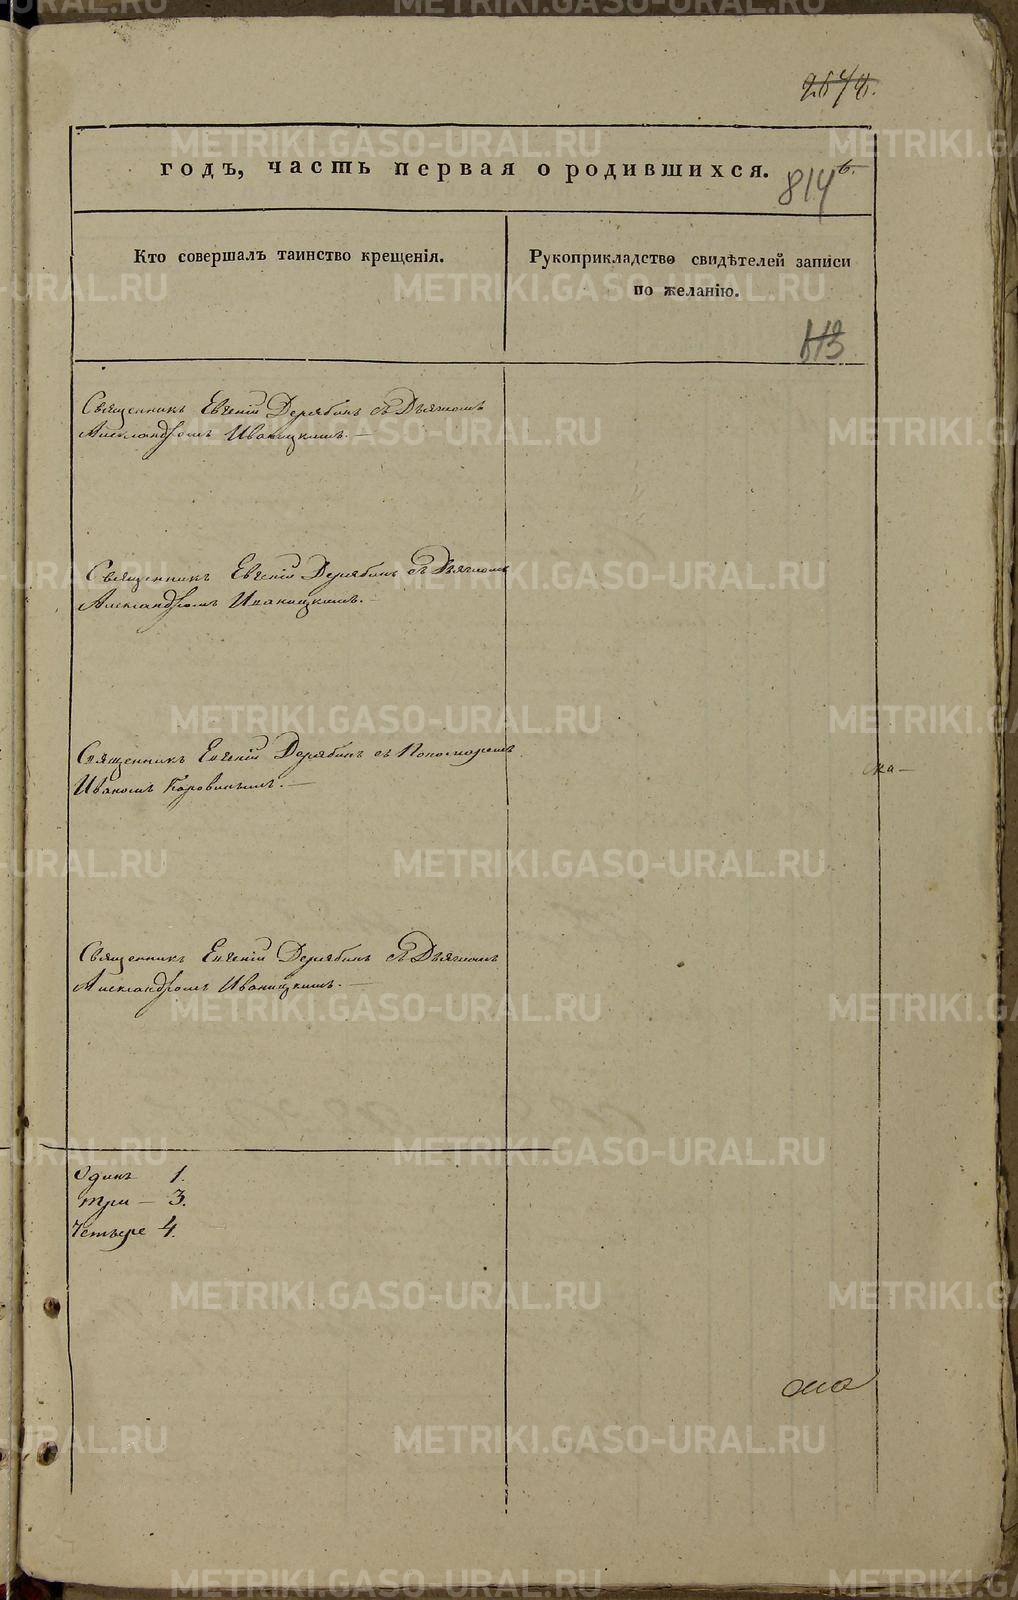 814
годъ, часть первая о родившихся.
Кто совершалъ таинство крещенія.
Рукоприкладство свидѣтелей записи
по желанію.
Священникъ Евгеній Дерябинъ съ Дьячкомъ
Александромъ Иваницкимъ.—
Священникъ Евгеній Дерябинъ съ Дьячкомъ
Александромъ Иваницкимъ.—
Священникъ Евгеній Дерябинъ съ Пономаремъ
Иваномъ Коровинымъ.—
Священникъ Евгеній Дерябинъ съ Дьячкомъ
Александромъ Иваницкимъ.—
Одинъ 1.
три — 3.
Четыре 4.
METRIKI.GASO-URAL.RU